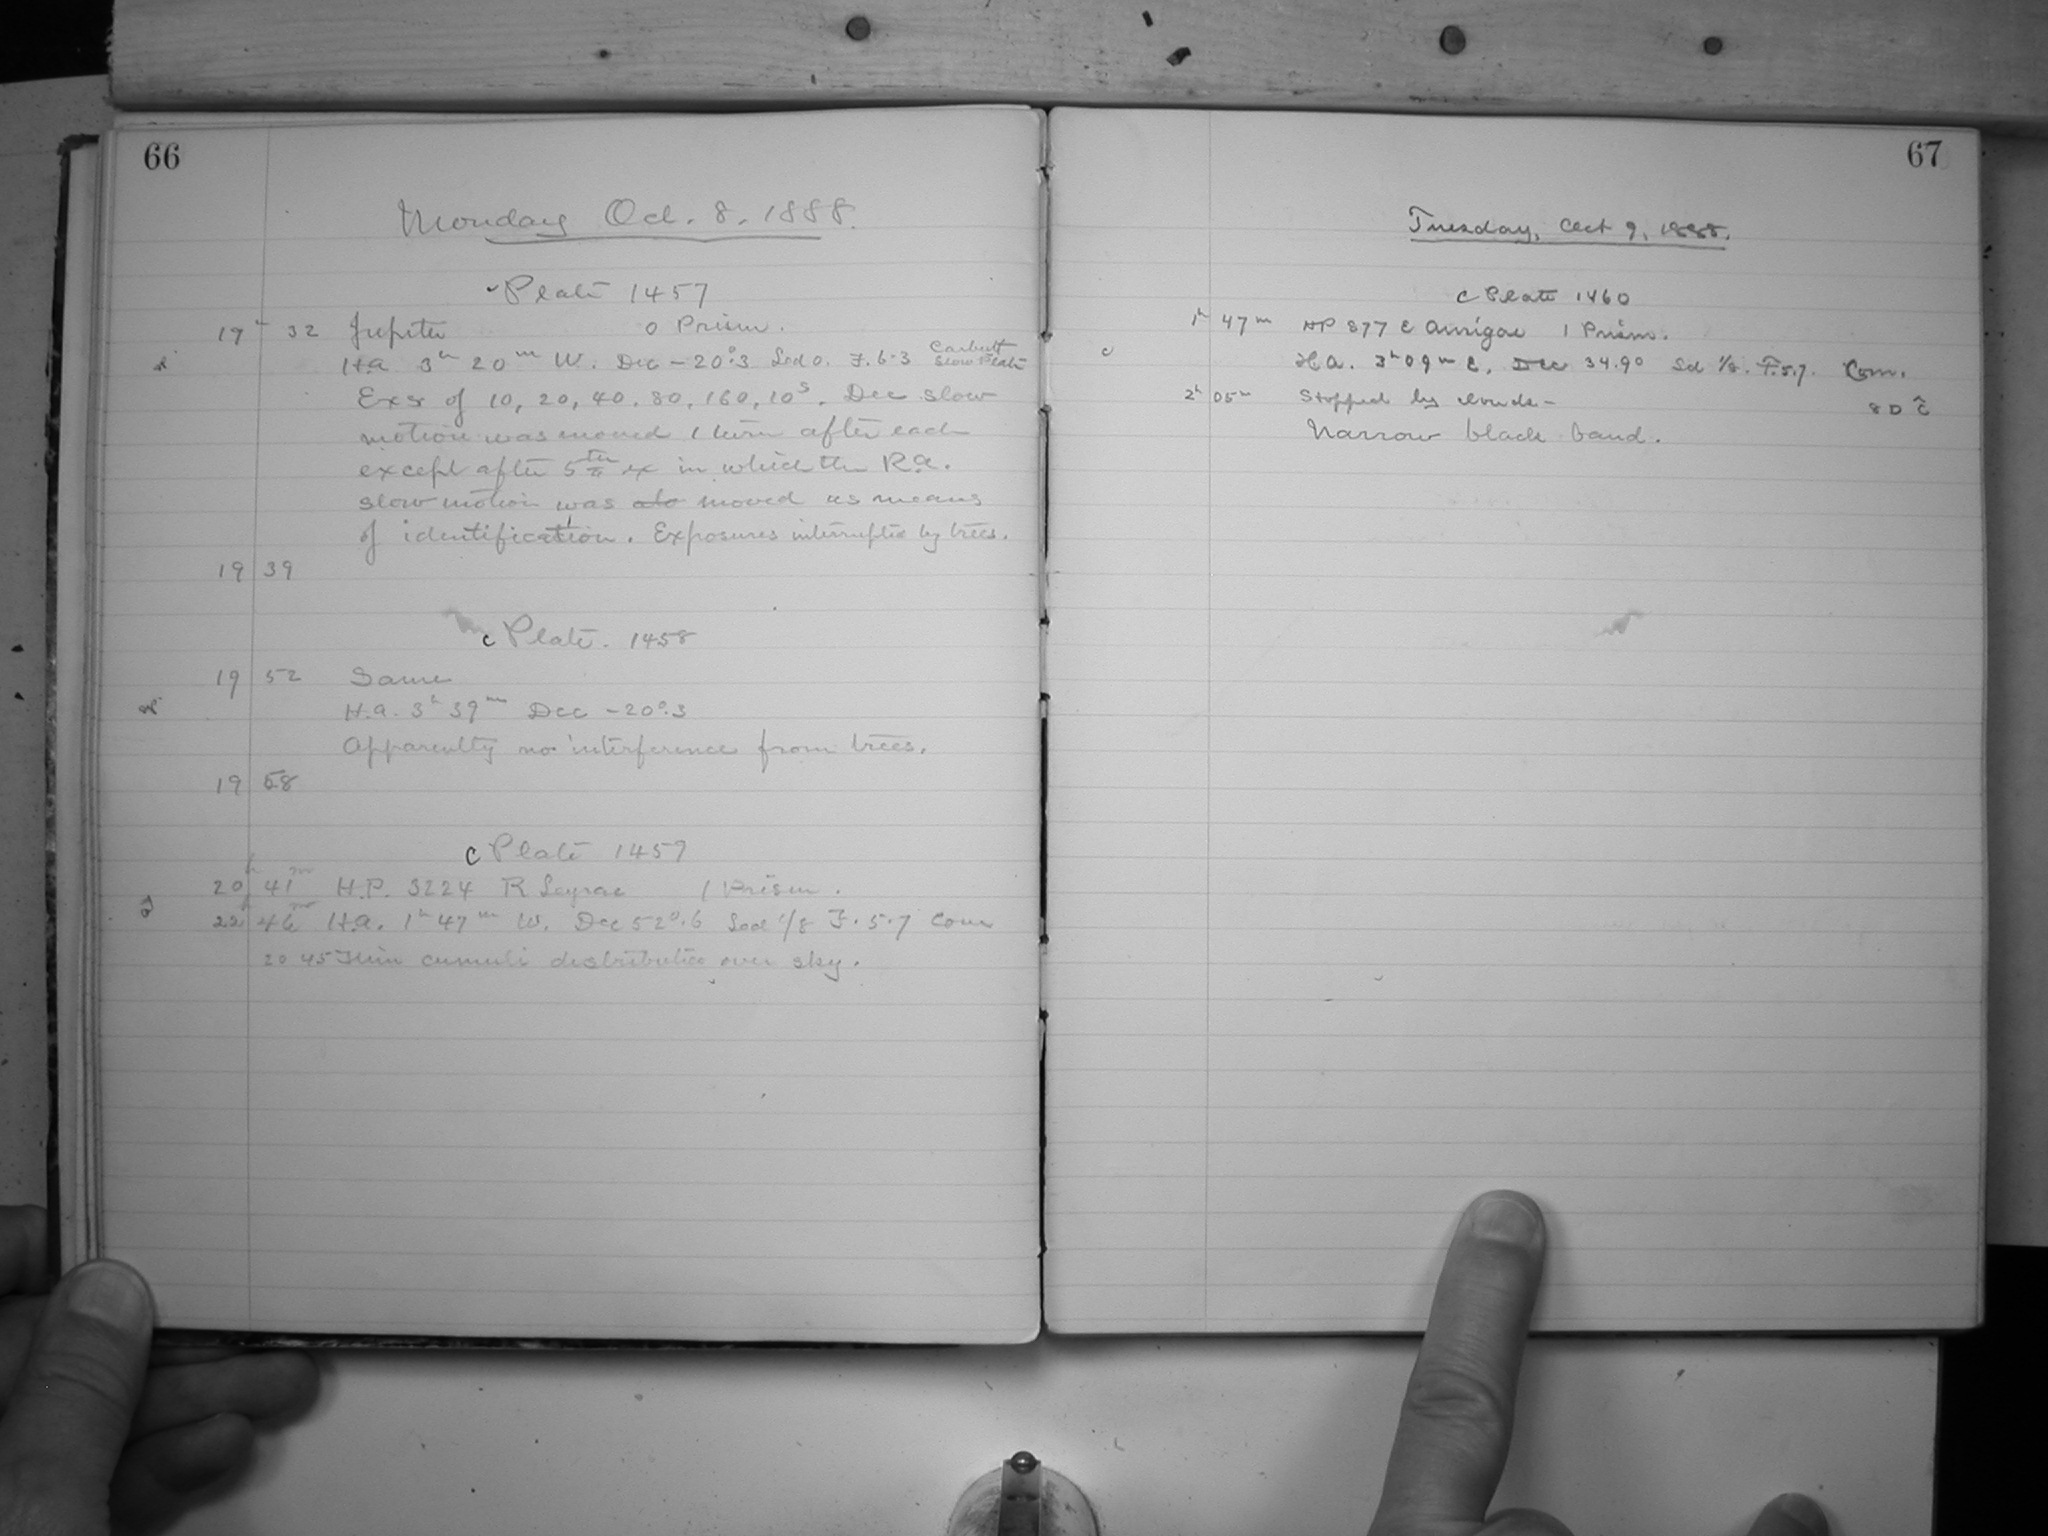 66
Monday Oct. 8. 1888.
c Plate 1457
19 h 32 Jupiter 0 Prism.
H.a 3h 20m W. Dec -20°.3 Sec 0. F. 6.3 Carbutt Slow Plate
Exs of 10, 20, 40, 80, 160, 10s. Dec slow
motion was moved 1 turn after each
except after 5th ex in which the R.a.
slow motion was also moved as means
of identification. Exposures interrupted by trees.
19 39
c Plate. 1458
19 52 Same
H.a. 3h 39m Dec -20°.3
Apparently no interference from trees.
19 58
c Plate 1459
20h 41m H.P. 3224 R Lyrae 1 Prism.
22h 46m H.a. 1h 47m W. Dec 52°.6 Sec 1/8 F. 5.7 Com
20 45 Thin cumuli distributed over sky.
67
Tuesday, Oct 9, 1888.
c Plate 1460
1h 47m HP 877 ε Aurigae 1 Prism.
c H.a. 3h 09m E. Dec 34.9° Sd 1/8. F.5.7. Com.
2h 05m Stopped by clouds - 8 D C
Narrow black band.